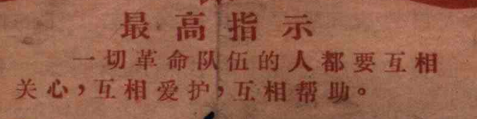 最高指示
一切革命队伍的人都要互相
关心，互相爱护，互相帮助。